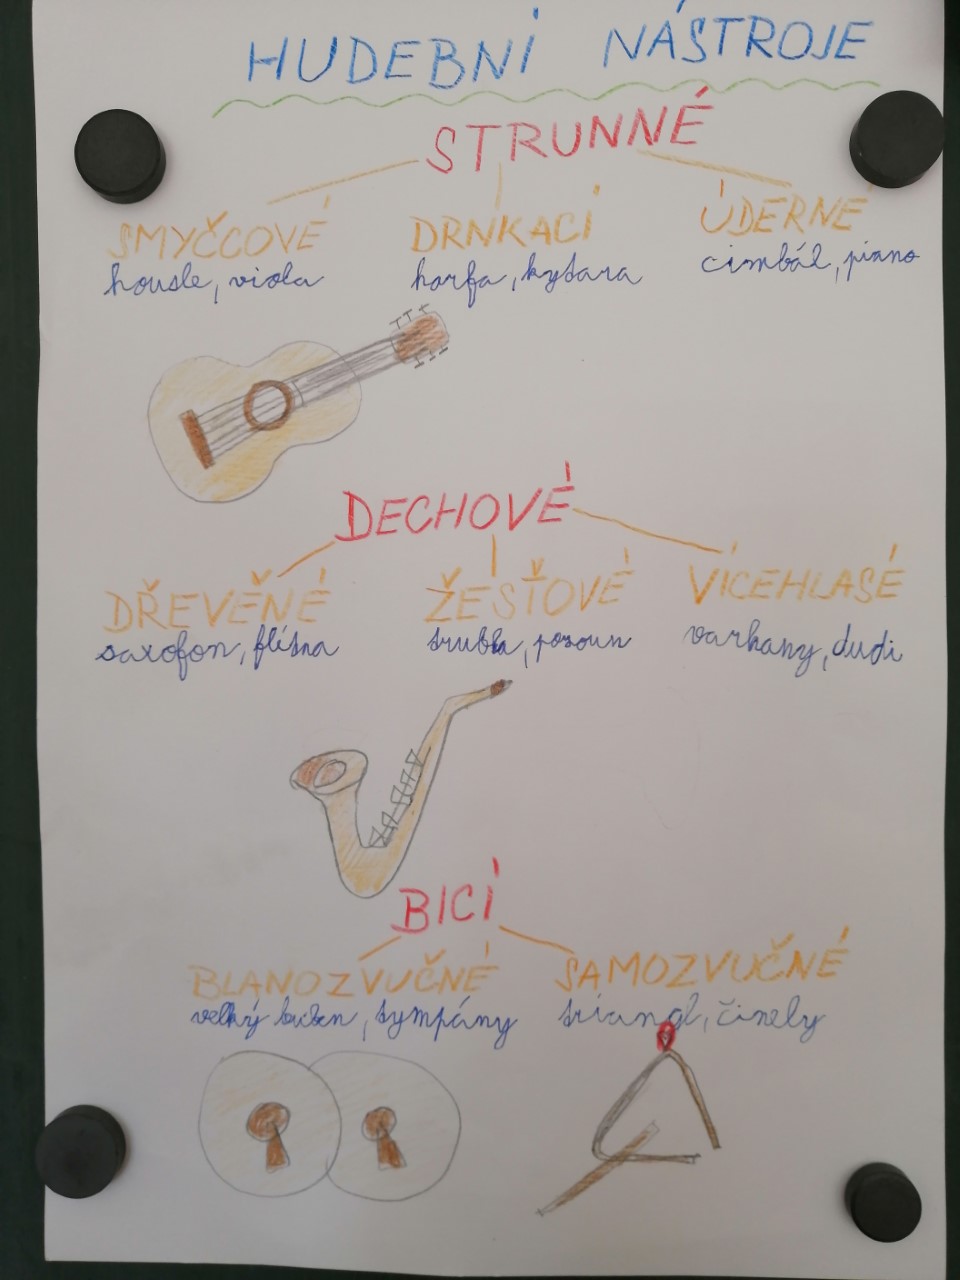 HUDEBNÍ NÁSTROJE
STRUNNÉ
SMYČCOVÉ DRNKACÍ ÚDERNÉ
housle, viola harfa, kytara cimbál, piano
DECHOVÉ
DŘEVĚNÉ ŽESŤOVÉ VÍCEHLASÉ
saxofon, flétna trubka, pozoun varhany, dudi
BICÍ
BLANOZVUČNÉ SAMOZVUČNÉ
velký buben, tympány triangl, činely